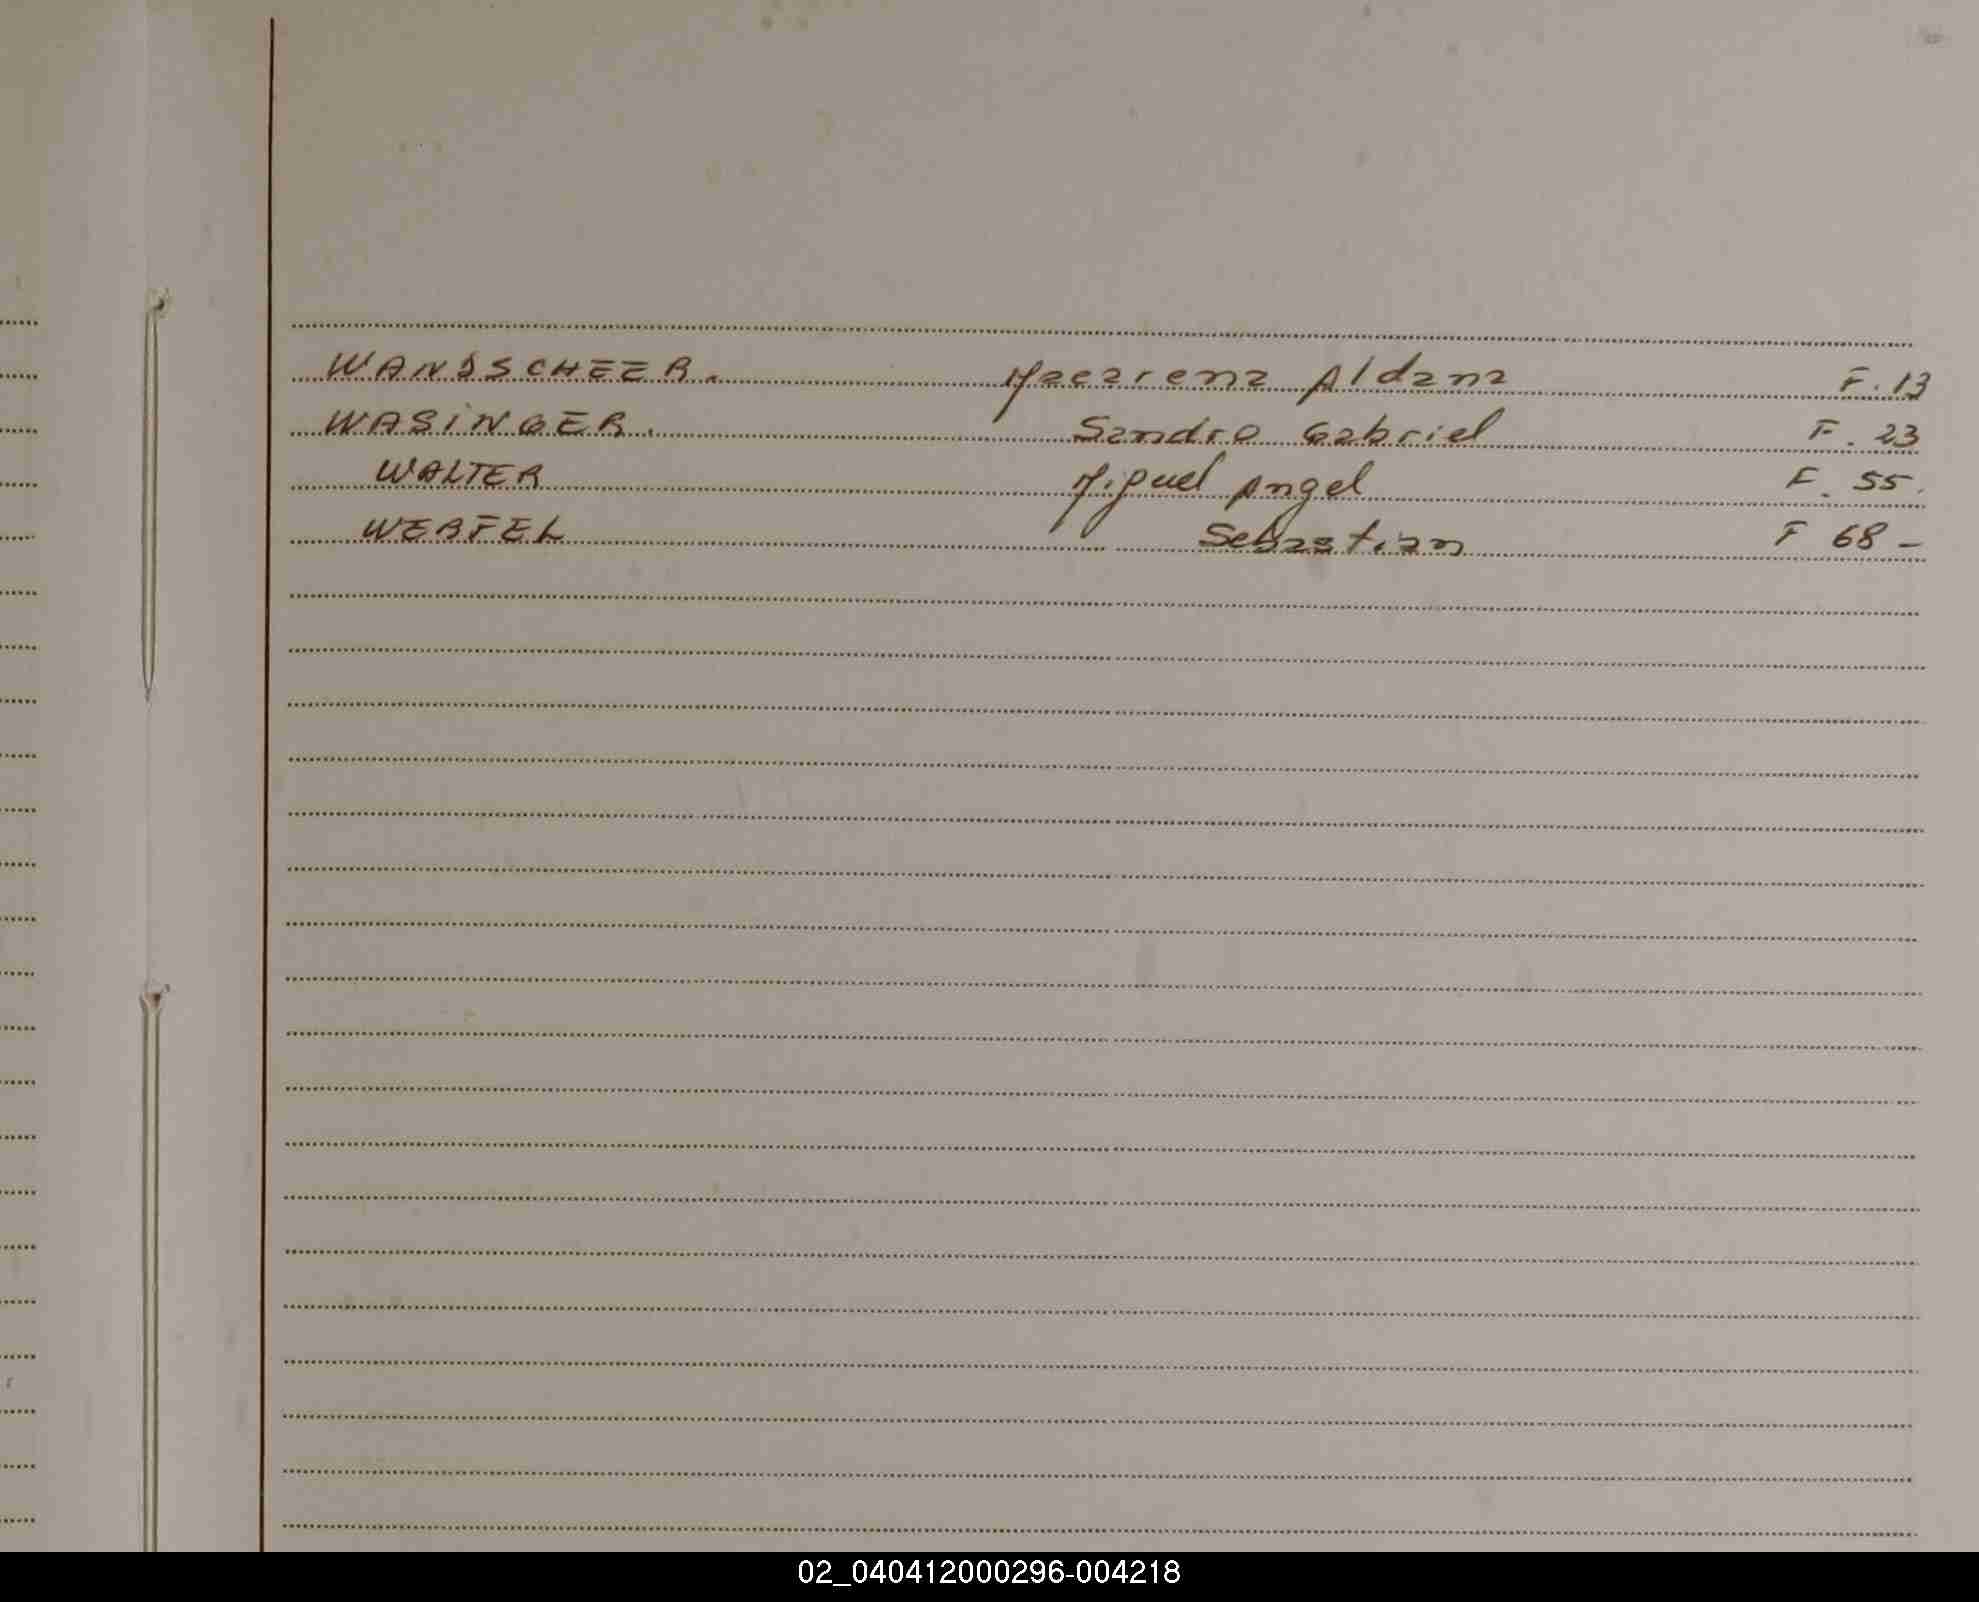 WANDSCHEER. Macarena Aldana F. 13
WASiNGER. Sandro Gabriel F. 23
WALTER Miguel Angel F. 55.
WERFEL Sebastian F 68 -
02_040412000296-004218